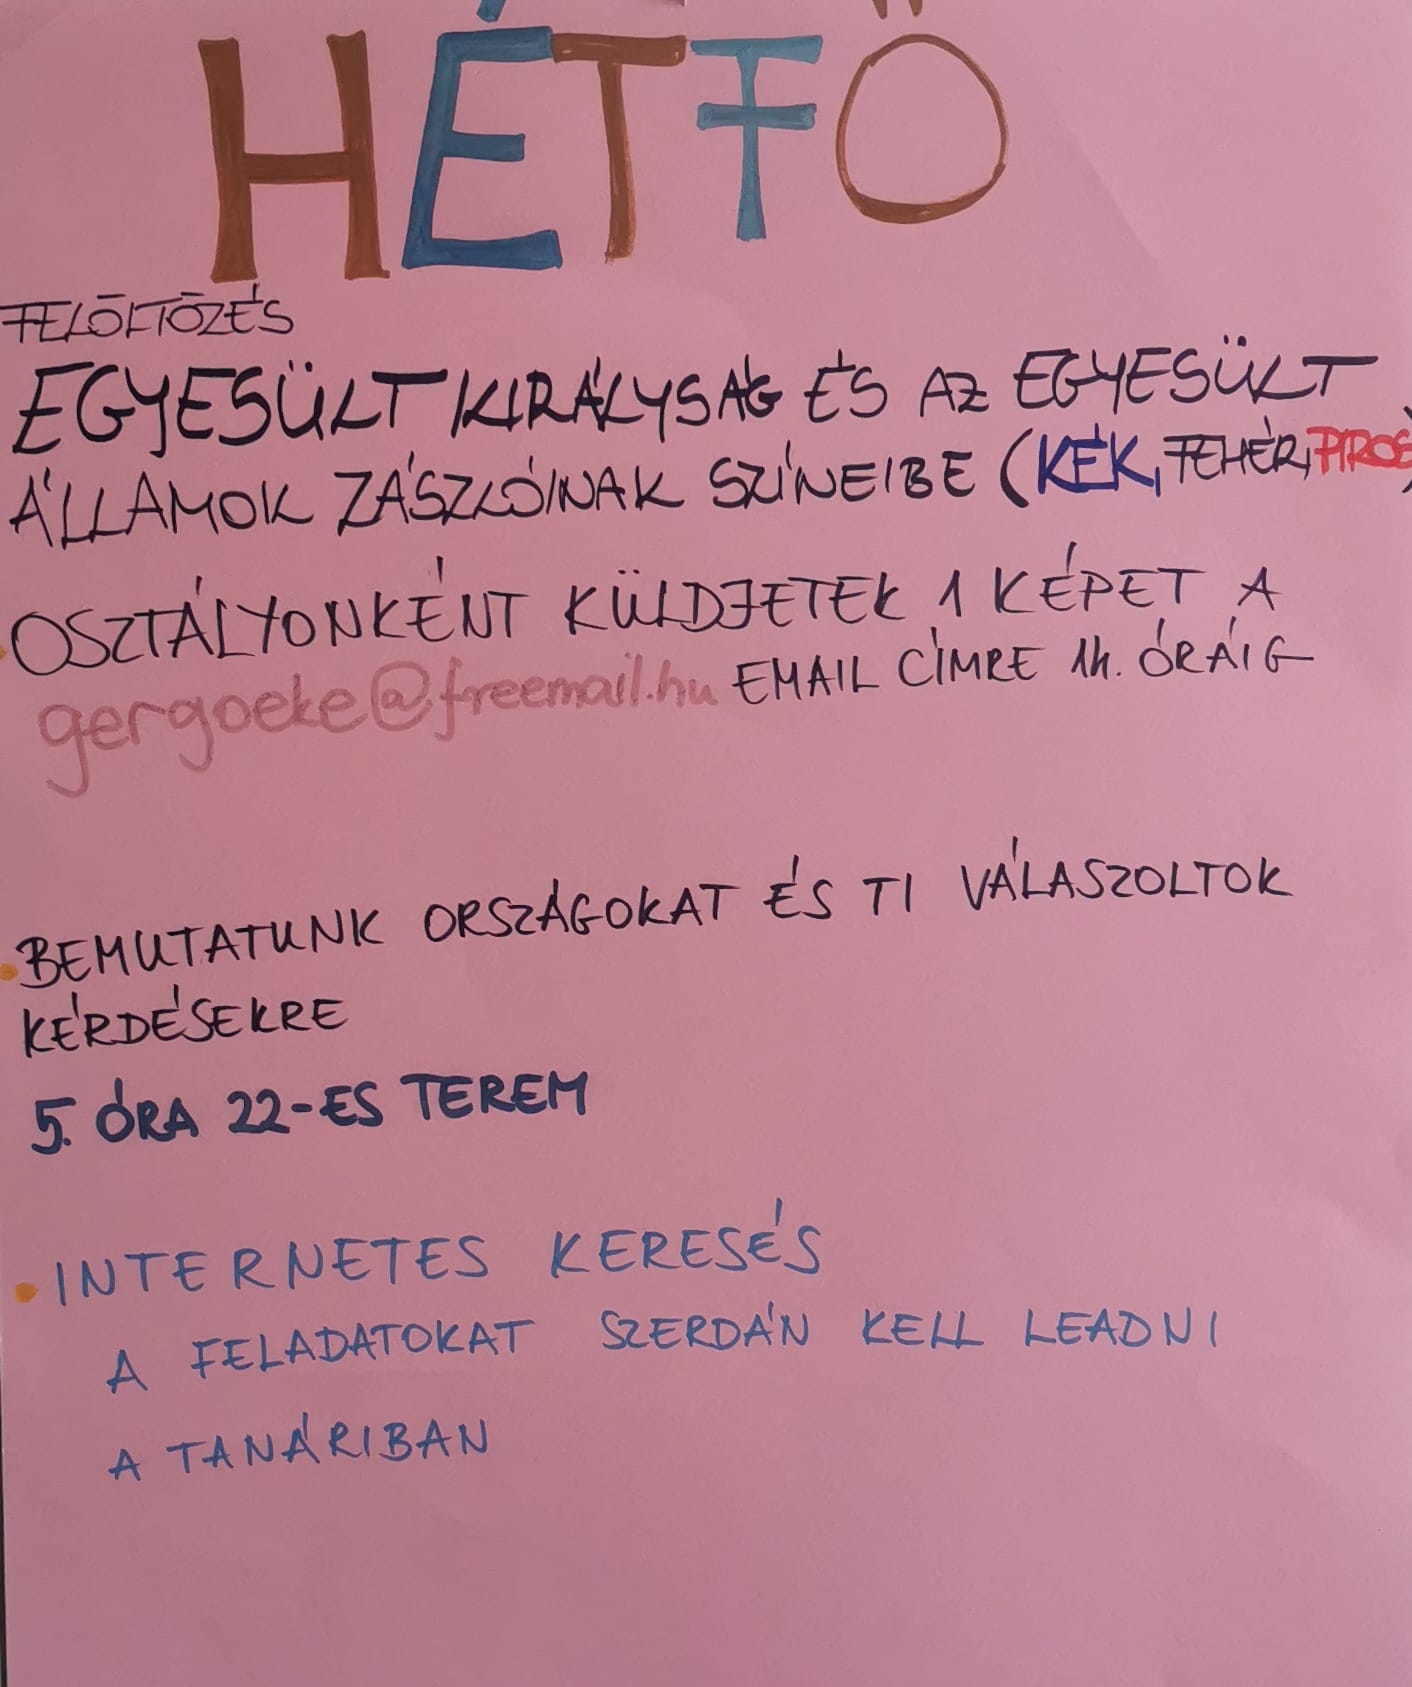 HÉTFŐ
FELÖLTÖZÉS
EGYESÜLT KIRÁLYSÁG ÉS AZ EGYESÜLT
ÁLLAMOK ZÁSZLÓINAK SZÍNEIBE (KÉK, FEHÉR, PIROS)
OSZTÁLYONKÉNT KÜLDJETEK 1 KÉPET A
gergoeke@freemail.hu EMAIL CÍMRE 14. ÓRÁIG
• BEMUTATUNK ORSZÁGOKAT ÉS TI VÁLASZOLTOK
KÉRDÉSEKRE
5. ÓRA 22-ES TEREM
• INTERNETES KERESÉS
A FELADATOKAT SZERDÁN KELL LEADNI
A TANÁRIBAN